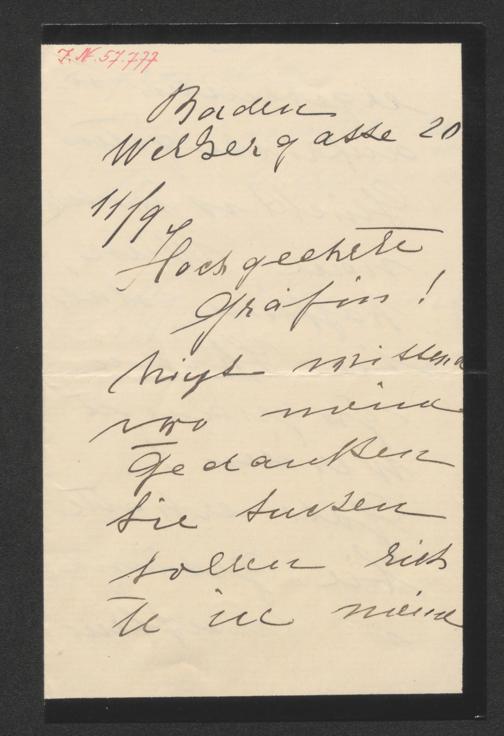 J. N. 57.777
Baden
Welzergasse 20
11/9
Hochgeehrte
Gräfin!
Nicht wissend
wo meine
Gedanken
Sie suchen
sollen rich
te ich meine